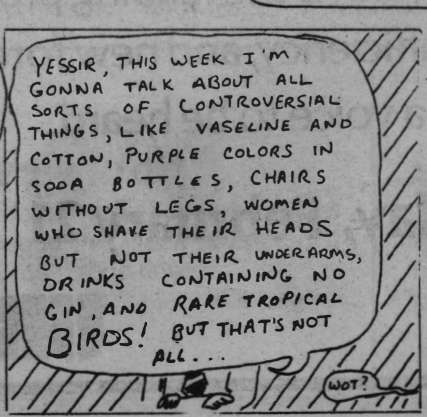 YESSIR, THIS WEEK I'M
GONNA TALK ABOUT ALL
SORTS OF CONTROVERSIAL
THINGS, LIKE VASELINE AND
COTTON, PURPLE COLORS IN
SODA BOTTLES, CHAIRS
WITHOUT LEGS, WOMEN
WHO SHAVE THEIR HEADS
BUT NOT THEIR UNDERARMS,
DRINKS CONTAINING NO
GIN, AND RARE TROPICAL
BIRDS! BUT THAT'S NOT
ALL...
WOT?